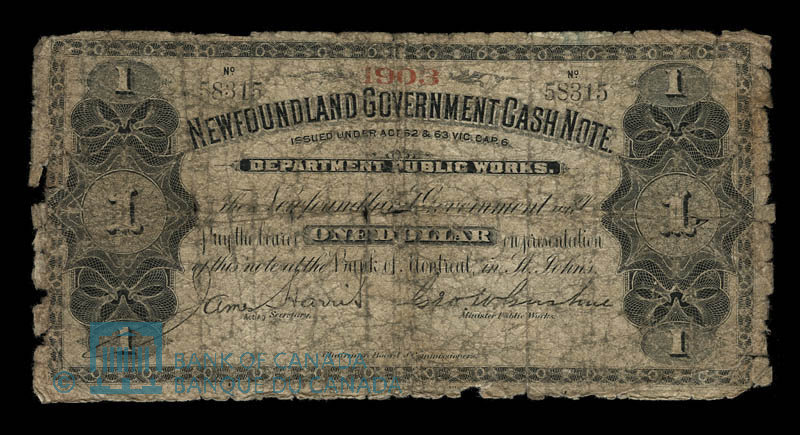 1 Nº 1903 Nº 1
58315 58315
NEWFOUNDLAND GOVERNMENT CASH NOTE.
ISSUED UNDER ACT 52 & 53 VIC. CAP. 6.
DEPARTMENT PUBLIC WORKS.
The Newfoundland Government will
1 1
Pay the bearer ONE DOLLAR on presentation
of this note at the Bank of Montreal, in St. Johns.
James Harris Geo W Gushue
Acting Secretary. Minister Public Works.
1 1
Chairman Board of Commissioners.
© BANK OF CANADA
BANQUE DU CANADA